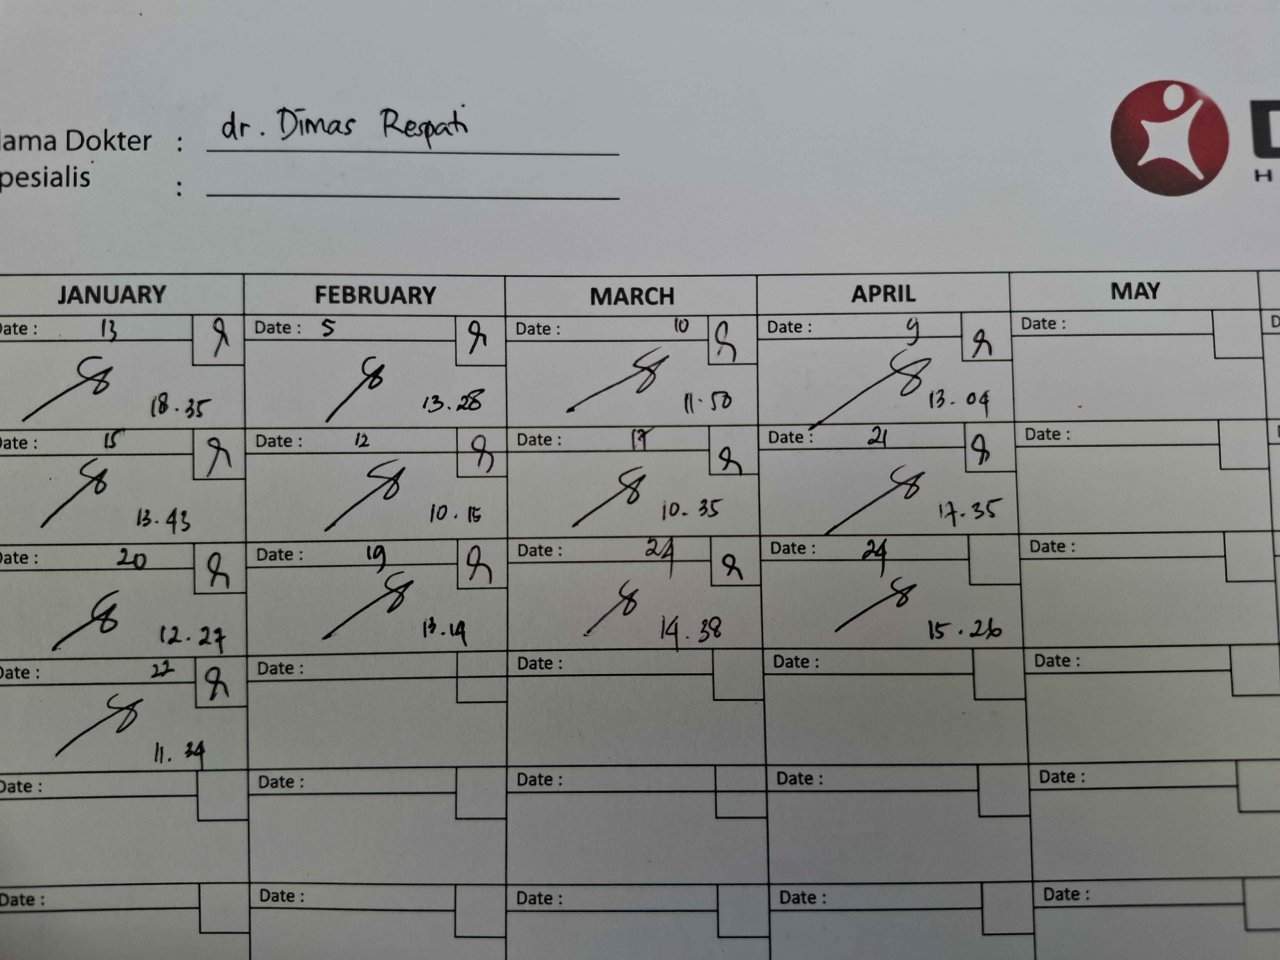 lama Dokter : dr. Dimas Respati
pesialis :
D
H
JANUARY FEBRUARY MARCH APRIL MAY
Date : 13 Date : 5 Date : 10 Date : 9 Date : D
18.35 13.28 11.50 13.04
Date : 15 Date : 12 Date : 17 Date : 21 Date :
13.43 10.15 10.35 17.35
Date : 20 Date : 19 Date : 24 Date : 24 Date :
12.27 13.19 14.38 15.26
Date : 22 Date : Date : Date : Date :
11.34
Date : Date : Date : Date : Date :
Date : Date : Date : Date : Date :